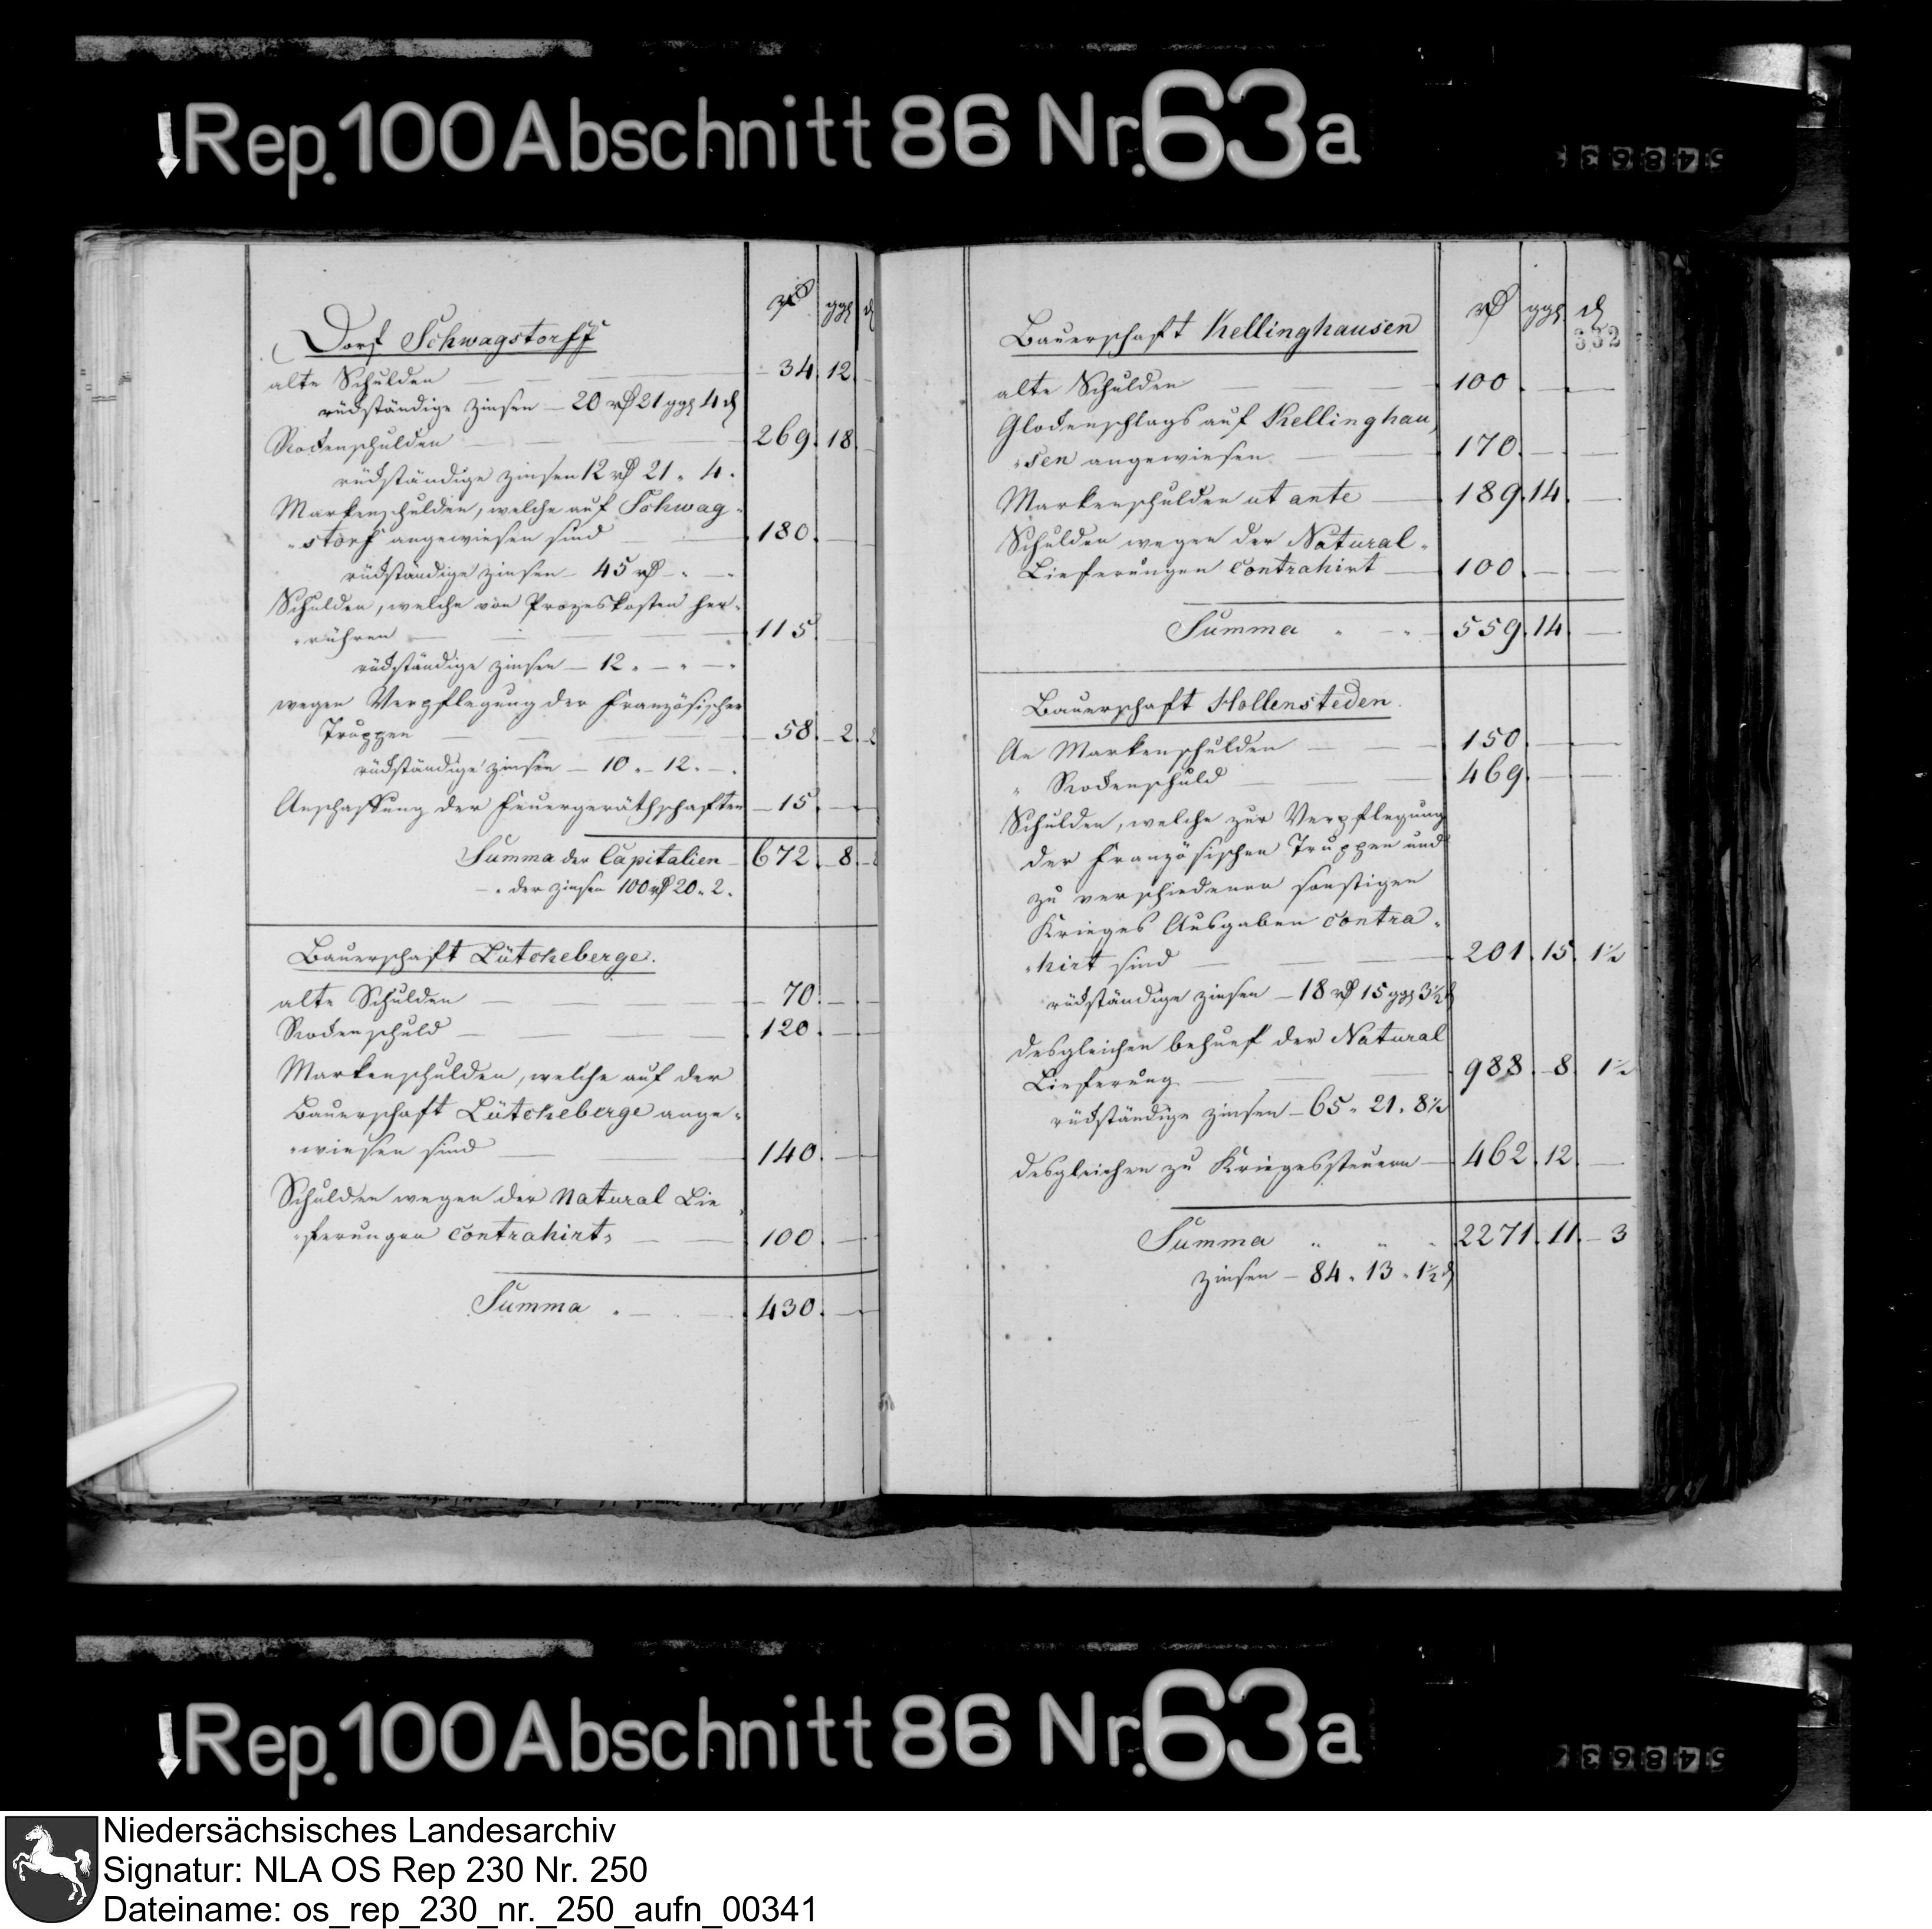 Rep. 100 Abschnitt 86 Nr. 63a
Dorf Schwagstorff
rß ggl d
alte Schulden — 34. 12. —
rückständige Zinsen — 20 rß 21 ggl 4 d
Rockenschulden — 269. 18. —
rückständige Zinsen 12 rß 21 „ 4 „
Markenschulden, welche auf Schwag-
„storf angewiesen sind — 180. — —
rückständige Zinsen — 45 rß — „ — „
Schulden, welche von Prozeskosten her-
„rühren — 115. — —
rückständige Zinsen — 12 „ — „ — „
wegen Verpflegung der Französischen
Truppen — 58. 2. 2
rückständige Zinsen — 10 „ 12 „ — „
Anschaffung der Feuergeräthschaften — 15. — —
Summa der Capitalien — 672. 8.
— „ der Zinsen 100 rß 20 „ 2 „
Bauerschaft Lütckeberge.
alte Schulden — 70. — —
Rockenschuld — 120. — —
Markenschulden, welche auf der
Bauerschaft Lütckeberge ange-
„wiesen sind — 140. — —
Schulden wegen der Natural Lie-
„ferungen contrahirt, — 100. — —
Summa „ — 430. — —
Bauerschaft Kellinghausen
rß ggl d
332
alte Schulden — 100. — —
Glockenschlags auf Kellinghau-
„sen angewiesen — 170. — —
Markenschulden ut ante — 189. 14. —
Schulden wegen der Natural-
Lieferungen contrahirt — 100. — —
Summa „ — „ 559. 14. —
Bauerschaft Hollensteden.
An Markenschulden — 150. — —
„ Rockenschuld — 469. — —
Schulden, welche zur Verpflegung
der Französischen Truppen und
zu verschiedenen sonstigen
Krieges Ausgaben contra-
„hirt sind — 201. 15. 1½
rückständige Zinsen — 18 rß 15 ggl 3½ d
desgleichen behuef der Natural
Lieferung — 988. 8. 1½
rückständige Zinsen — 65 „ 21 „ 8½
desgleichen zu Kriegessteuern — 462. 12. —
Summa „ „ „ 2271. 11. 3
Zinsen — 84 „ 13 „ 1½ d
Rep. 100 Abschnitt 86 Nr. 63a
Niedersächsisches Landesarchiv
Signatur: NLA OS Rep 230 Nr. 250
Dateiname: os_rep_230_nr._250_aufn_00341